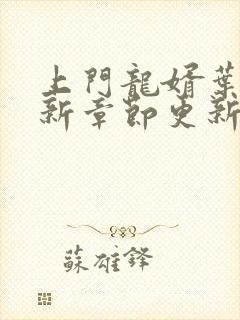 上門龍婿葉
新章節更新
蘇雄鋒